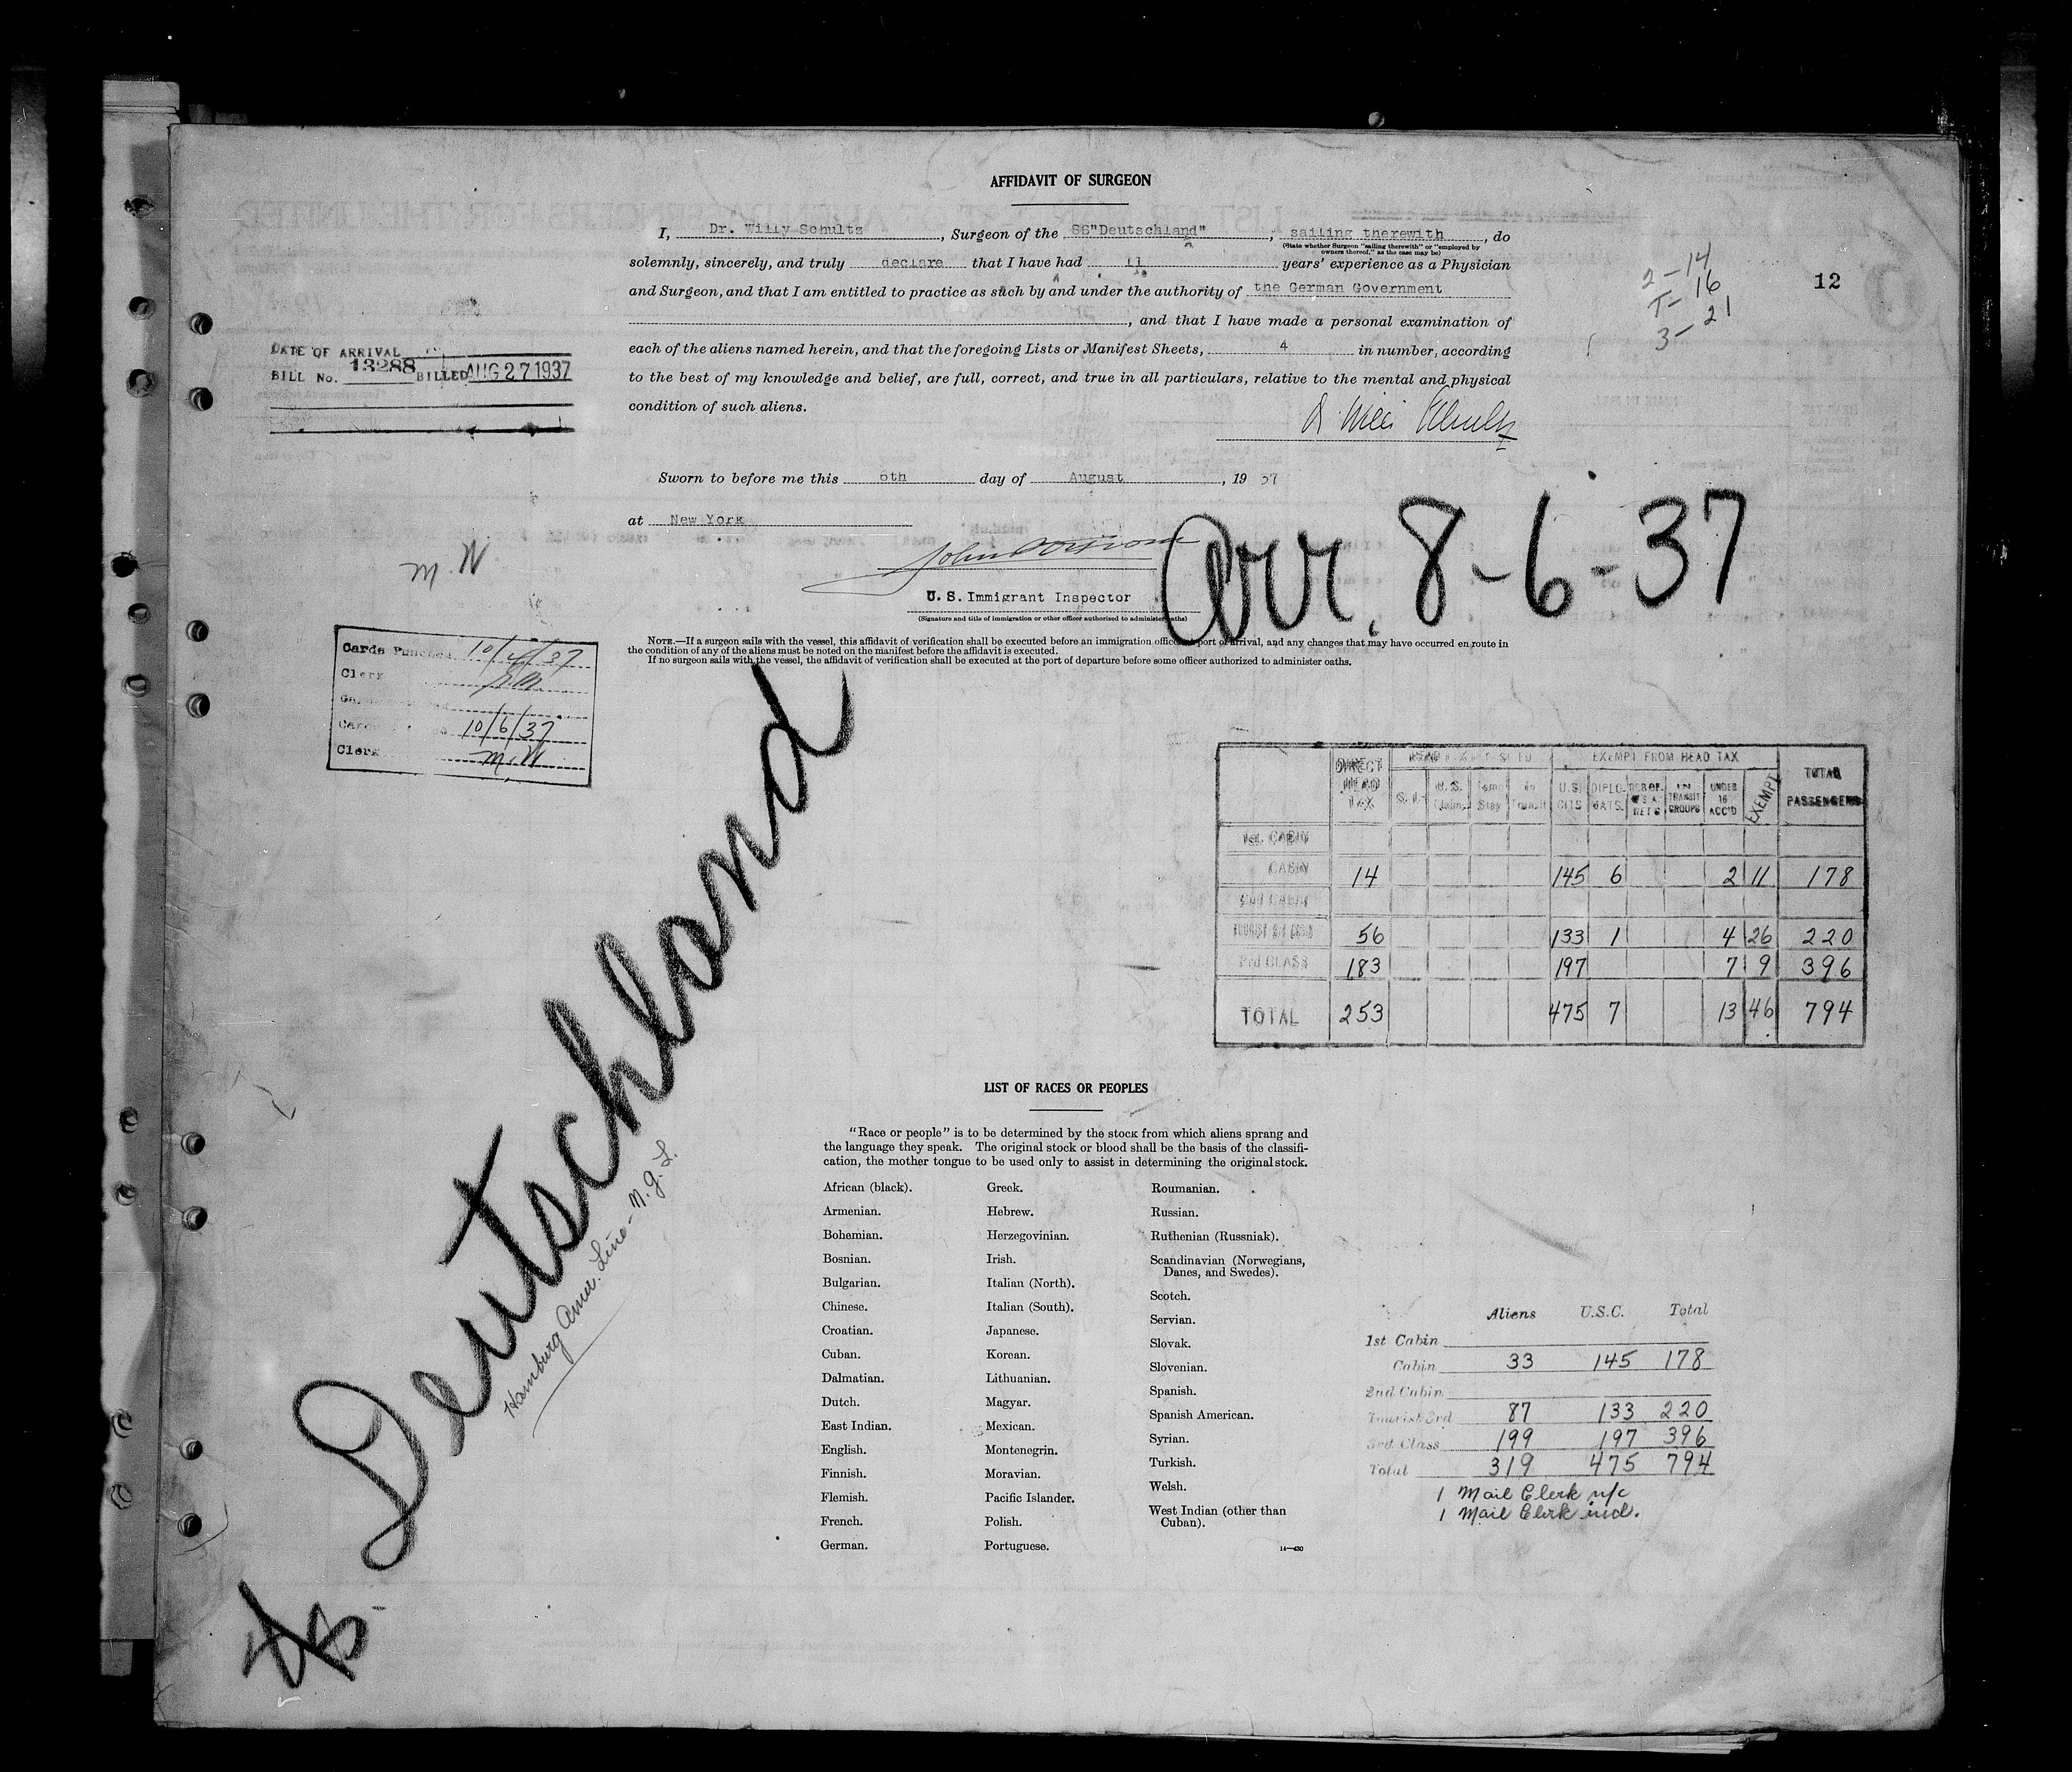 AFFIDAVIT OF SURGEON
I, Dr. Willy Schultz, Surgeon of the SS"Deutschland", sailing therewith, do
(State whether Surgeon "sailing therewith" or "employed by
owners thereof," as the case may be)
solemnly, sincerely, and truly declare that I have had 11 years' experience as a Physician
and Surgeon, and that I am entitled to practice as such by and under the authority of the German Government
, and that I have made a personal examination of
each of the aliens named herein, and that the foregoing Lists or Manifest Sheets, 4 in number, according
to the best of my knowledge and belief, are full, correct, and true in all particulars, relative to the mental and physical
condition of such aliens.
2-14
T-16
3-21
12
DATE OF ARRIVAL
BILL No. 13288 BILLED AUG 27 1937
Sworn to before me this 6th day of August, 1937
at New York
M.W
Arr. 8-6-37
U. S. Immigrant Inspector
(Signature and title of immigration or other officer authorized to administer oaths)
NOTE.—If a surgeon sails with the vessel, this affidavit of verification shall be executed before an immigration officer at port of arrival, and any changes that may have occurred en route in
the condition of any of the aliens must be noted on the manifest before the affidavit is executed.
If no surgeon sails with the vessel, the affidavit of verification shall be executed at the port of departure before some officer authorized to administer oaths.
Cards Punched
Clerk
10/6/37
Clerk M.W
SS. Deutschland
Hamburg Amer. Line - N.G.L.
DIRECT HEAD TAX
EXEMPT FROM HEAD TAX
TOTAL PASSENGERS
U.S. Claims Temp Stay In Transit U.S. CITS DIPLO-MATS. TRANSIT GROUPS UNDER 16 ACC'D EXEMPT
1st. CABIN
CABIN 14 145 6 2 11 178
2nd CABIN
TOURIST 3rd CABIN 56 133 1 4 26 220
3rd CLASS 183 197 7 9 396
TOTAL 253 475 7 13 46 794
LIST OF RACES OR PEOPLES
"Race or people" is to be determined by the stock from which aliens sprang and
the language they speak. The original stock or blood shall be the basis of the classifi-
cation, the mother tongue to be used only to assist in determining the original stock.
African (black).
Armenian.
Bohemian.
Bosnian.
Bulgarian.
Chinese.
Croatian.
Cuban.
Dalmatian.
Dutch.
East Indian.
English.
Finnish.
Flemish.
French.
German.
Greek.
Hebrew.
Herzegovinian.
Irish.
Italian (North).
Italian (South).
Japanese.
Korean.
Lithuanian.
Magyar.
Mexican.
Montenegrin.
Moravian.
Pacific Islander.
Polish.
Portuguese.
Roumanian.
Russian.
Ruthenian (Russniak).
Scandinavian (Norwegians,
Danes, and Swedes).
Scotch.
Servian.
Slovak.
Slovenian.
Spanish.
Spanish American.
Syrian.
Turkish.
Welsh.
West Indian (other than
Cuban).
14—430
Aliens U.S.C. Total
1st Cabin
Cabin 33 145 178
2nd Cabin
Tourist 3rd 87 133 220
3rd Class 199 197 396
Total 319 475 794
1 Mail Clerk n/c
1 Mail Clerk incl.